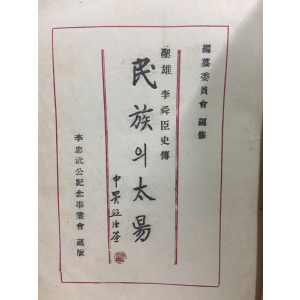 編纂委員會 編修
聖雄 李舜臣史傳
民族의太陽
李忠武公紀念事業會 藏版